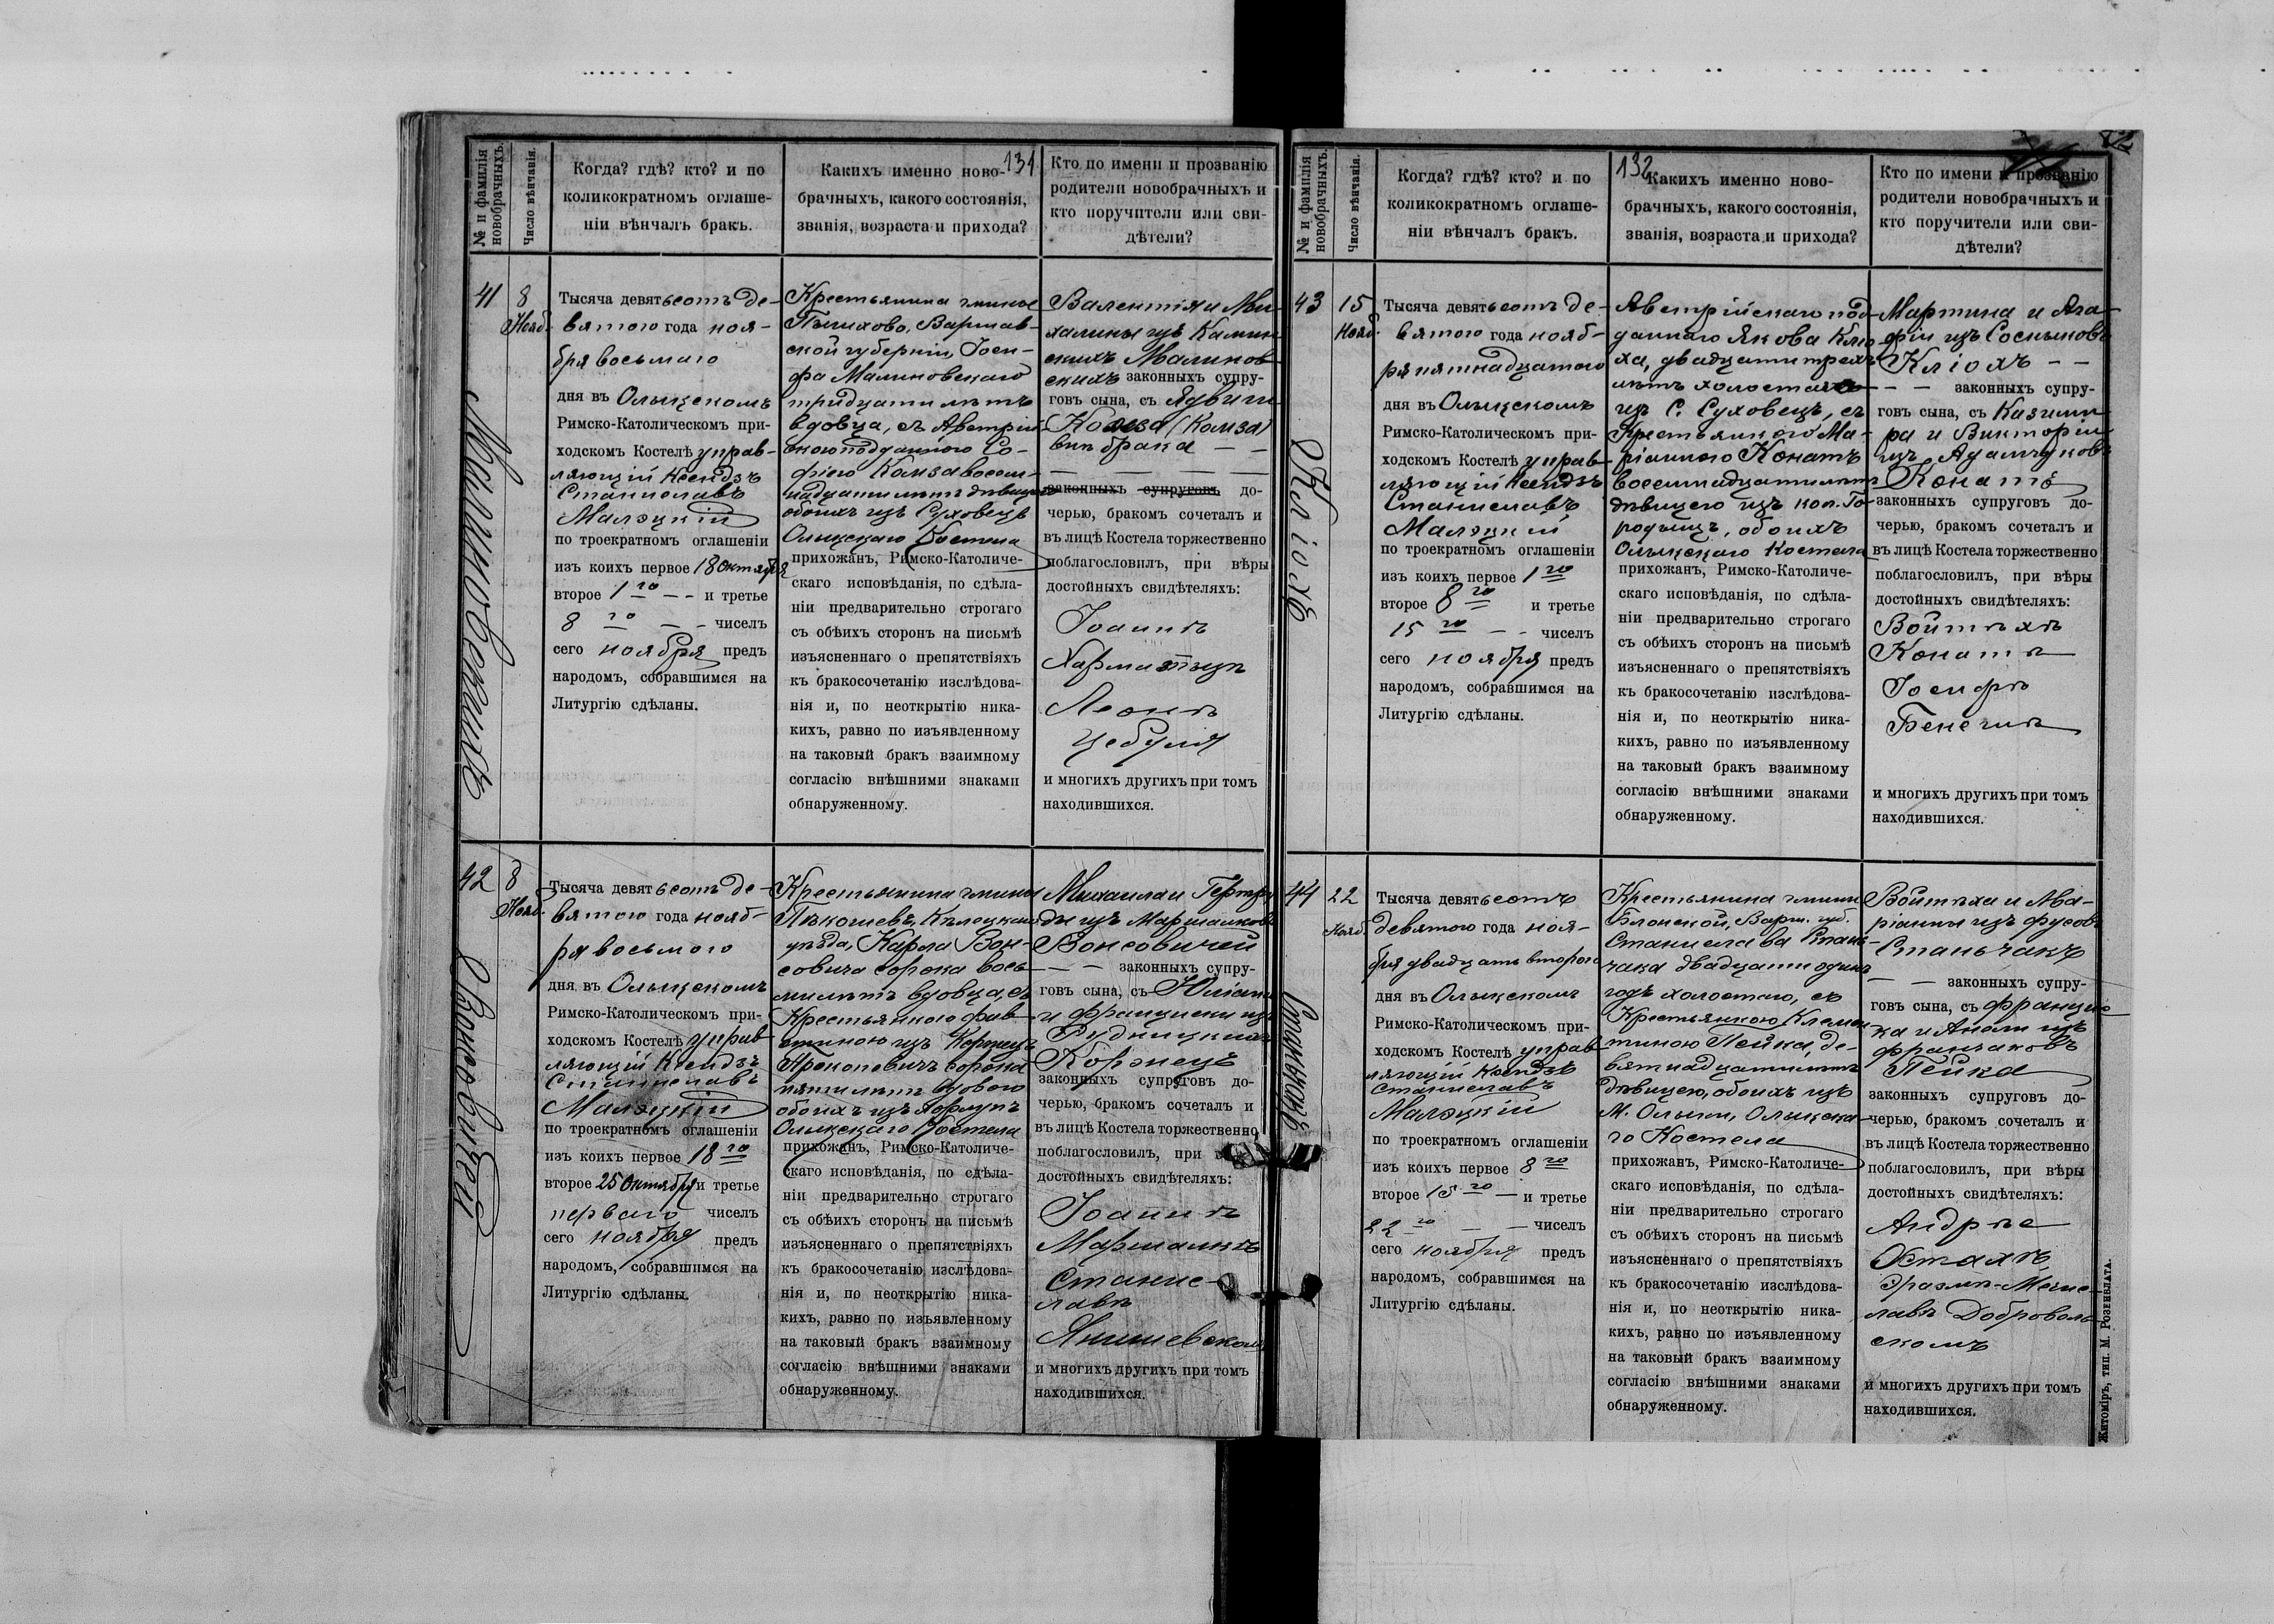 131
№ и фамилія
новобрачныхъ.
Число вѣнчанія.
Когда? гдѣ? кто? и по
коликократномъ оглаше-
ніи вѣнчалъ бракъ.
Какихъ именно ново-
брачныхъ, какого состоянія,
званія, возраста и прихода?
Кто по имени и прозванію
родители новобрачныхъ и
кто поручители или сви-
дѣтели?
41
8
Нояб.
Малиновскихъ
Тысяча девятьсотъ де-
вятого года ноя-
бря восьмаго
дня въ Олыцскомъ
Римско-Католическомъ при-
ходскомъ Костелѣ управ-
ляющій Ксендзъ
Станиславъ
Малэцкій
по троекратномъ оглашеніи
изъ коихъ первое 18 октября
второе 1го — - и третье
8 го — - чиселъ
сего ноября предъ
народомъ, собравшимся на
Литургію сдѣланы.
Крестьянина гмины
Варшав-
ской губерніи, Іоси-
фа Малиновскаго
тридцати лѣтъ
вдовца, съ Австрій-
скоюподданною Со-
фіею Комза восем-
надцати лѣтъ дѣвицею
обоихъ изъ Суховецъ
Олыцскаго Костела
прихожанъ, Римско-Католиче-
скаго исповѣданія, по сдѣла-
ніи предварительно строгаго
съ обѣихъ сторонъ на письмѣ
изъясненнаго о препятствіяхъ
къ бракосочетанію изслѣдова-
нія и, по неоткрытію ника-
кихъ, равно по изъявленному
на таковый бракъ взаимному
согласію внѣшними знаками
обнаруженному.
Валентія и Ми-
халины изъ Камин-
скихъ Малинов-
скихъ законныхъ супру-
говъ сына, съ Ядвиги
(Комза)
внѣ брака — —
законныхъ супруговъ до-
черью, бракомъ сочеталъ и
въ лицѣ Костела торжественно
поблагословилъ, при вѣры
достойныхъ свидѣтеляхъ:
Іоаннъ
Леонъ
Цебуля
и многихъ другихъ при томъ
находившихся.
42
8
Нояб.
Вонсовичей
Тысяча девятьсотъ де-
вятого года нояб-
ря восьмого
дня въ Олыцскомъ
Римско-Католическомъ при-
ходскомъ Костелѣ управ-
ляющій Ксендзъ
Станиславъ
Малэцкій
по троекратномъ оглашеніи
изъ коихъ первое 18го
второе 25 октября и третье
перваго чиселъ
сего ноября предъ
народомъ, собравшимся на
Литургію сдѣланы.
Крестьянина гмины
Кѣлецкаго
уѣзда, Карла Вон-
совича сорока вось-
ми лѣтъ вдовца, съ
Крестьянкою Фав-
стиною изъ Коржецъ
Прокоповичъ сорока
пяти лѣтъ вдовою
обоихъ изъ
Олыцскаго Костела
прихожанъ, Римско-Католиче-
скаго исповѣданія, по сдѣла-
ніи предварительно строгаго
съ обѣихъ сторонъ на письмѣ
изъясненнаго о препятствіяхъ
къ бракосочетанію изслѣдова-
нія и, по неоткрытію ника-
кихъ, равно по изъявленному
на таковый бракъ взаимному
согласію внѣшними знаками
обнаруженному.
Михаила и Гертру-
ды изъ Маршалковъ
Вонсовичей
— — законныхъ супру-
говъ сына, съ Юліана
и Франциски изъ
Рудницкихъ
Коржецъ
законныхъ супруговъ до-
черью, бракомъ сочеталъ и
въ лицѣ Костела торжественно
поблагословилъ, при
достойныхъ свидѣтеляхъ:
Іоаннъ
Маршалкъ
Станис-
лавъ
Янишевскомъ
и многихъ другихъ при томъ
находившихся.
132
№ и фамилія
новобрачныхъ.
Число вѣнчанія.
Когда? гдѣ? кто? и по
коликократномъ оглаше-
ніи вѣнчалъ бракъ.
Какихъ именно ново-
брачныхъ, какого состоянія,
званія, возраста и прихода?
Кто по имени и прозванію
родители новобрачныхъ и
кто поручители или сви-
дѣтели?
43
15
Нояб.
Кліохъ
Тысяча девятьсотъ де-
вятого года нояб-
ря пятнадцатого
дня въ Олыцскомъ
Римско-Католическомъ при-
ходскомъ Костелѣ управ-
ляющій Ксендзъ
Станиславъ
Малэцкій
по троекратномъ оглашеніи
изъ коихъ первое 1го
второе 8го и третье
15го — - чиселъ
сего ноября предъ
народомъ, собравшимся на
Литургію сдѣланы.
Австрійскаго под-
даннаго Якова Кліо-
ха, двадцати трехъ
лѣтъ холостаго
изъ С. Суховецъ, съ
Крестьянкою Ма-
ріанною Конатъ
восемнадцати лѣтъ
дѣвицею изъ кол. Го-
родыщъ, обоихъ
Олыцскаго Костела
прихожанъ, Римско-Католиче-
скаго исповѣданія, по сдѣла-
ніи предварительно строгаго
съ обѣихъ сторонъ на письмѣ
изъясненнаго о препятствіяхъ
къ бракосочетанію изслѣдова-
нія и, по неоткрытію ника-
кихъ, равно по изъявленному
на таковый бракъ взаимному
согласію внѣшними знаками
обнаруженному.
Мартина и Ага-
фіи изъ Сосныковъ
Кліохъ — —
— — законныхъ супру-
говъ сына, съ Казими-
ра и Викторіи
изъ Адамчуковъ
Конатъ
законныхъ супруговъ до-
черью, бракомъ сочеталъ и
въ лицѣ Костела торжественно
поблагословилъ, при вѣры
достойныхъ свидѣтеляхъ:
Войтѣхъ
Конатъ
Іосифъ
Бенегинъ
и многихъ другихъ при томъ
находившихся.
44
22
Нояб.
Станьчакъ
Тысяча девятьсотъ
девятого года ноя-
бря двадцать второго
дня въ Олыцскомъ
Римско-Католическомъ при-
ходскомъ Костелѣ управ-
ляющій Ксендзъ
Станиславъ
Малэцкій
по троекратномъ оглашеніи
изъ коихъ первое 8го
второе 15го — и третье
22го — — чиселъ
сего ноября предъ
народомъ, собравшимся на
Литургію сдѣланы.
Крестьянина гмины
Блонской, Варш. губ.
Станислава Стань-
чака двадцати одинъ
годъ холостаго, съ
Крестьянкою Клемен-
тиною Пейка, де-
вятнадцати лѣтъ
дѣвицею, обоихъ изъ
М. Олыки, Олыцска-
го Костела
прихожанъ, Римско-Католиче-
скаго исповѣданія, по сдѣла-
ніи предварительно строгаго
съ обѣихъ сторонъ на письмѣ
изъясненнаго о препятствіяхъ
къ бракосочетанію изслѣдова-
нія и, по неоткрытію ника-
кихъ, равно по изъявленному
на таковый бракъ взаимному
согласію внѣшними знаками
обнаруженному.
Войтѣха и Ма-
ріанны изъ Фусовъ
Станьчакъ
— — законныхъ супру-
говъ сына, съ Францис-
ка и Анели изъ
Франчаковъ
Пейка
законныхъ супруговъ до-
черью, бракомъ сочеталъ и
въ лицѣ Костела торжественно
поблагословилъ, при вѣры
достойныхъ свидѣтеляхъ:
Андрѣе
Остахъ
Эразмъ-Мечис-
лавъ Доброволь-
скомъ
и многихъ другихъ при томъ
находившихся.
Житоміръ, тип. М. Розенблата.